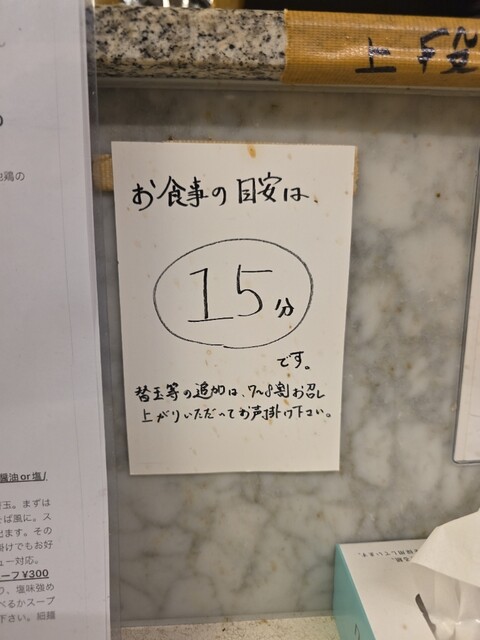 上段
地鶏の
お食事の目安は、
15分
です。
替玉等の追加は、7~8割お召し
上がりいただいてお声掛け下さい。
醤油or塩/
玉。まずは
そば風に。ス
出ます。その
掛けでもお好
ュー対応。
ープ¥300
り、塩味強め
べるかスープ
下さい。細麺